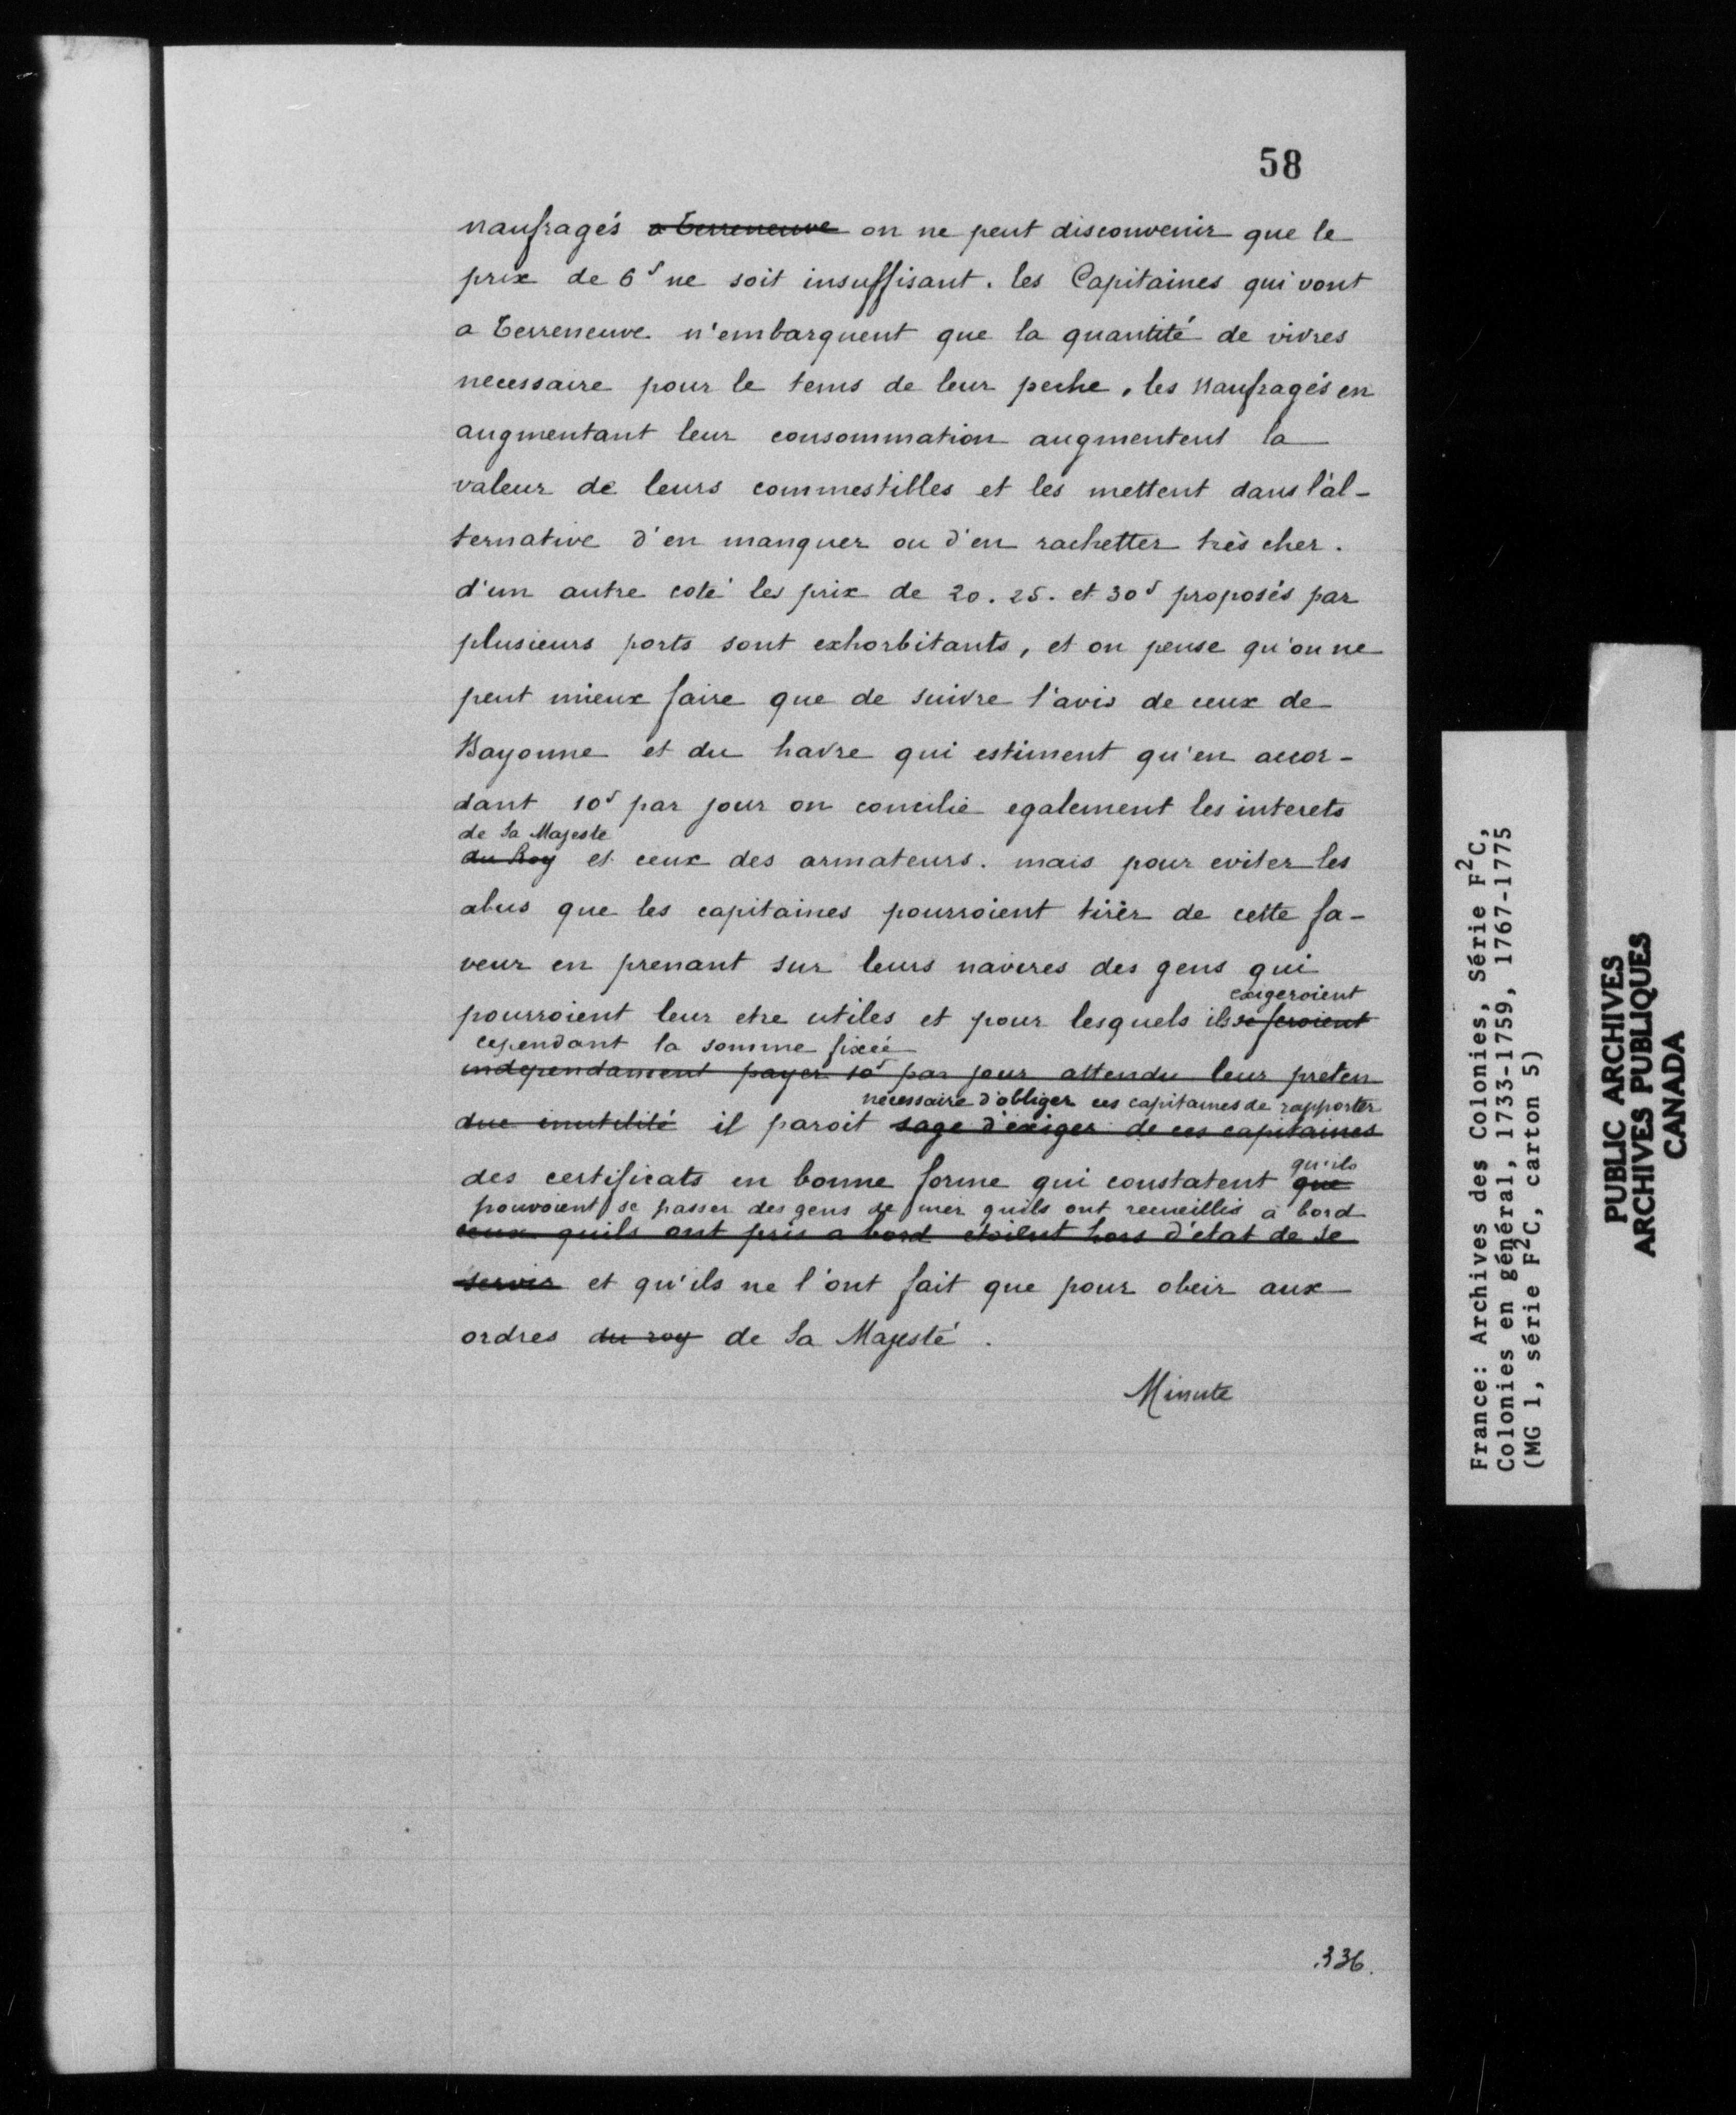 58
naufragés a Terreneuve on ne peut disconvenir que le
prix de 6s ne soit insuffisant. les Capitaines qui vont
a Terreneuve n'embarquent que la quantité de vivres
necessaire pour le tems de leur peche, les Naufragés en
augmentant leur consommation augmentent la
valeur de leurs commestilles et les mettent dans l'al-
ternative d'en manquer ou d'en rachetter très cher.
d'un autre coté les prix de 20. 25. et 30s proposés par
plusieurs ports sont exhorbitants, et on pense qu'on ne
peut mieux faire que de suivre l'avis de ceux de
Bayonne et du havre qui estiment qu'en accor-
dant 10s par jour on concilie egalement les interets
de Sa Majeste
du Roy et ceux des armateurs. mais pour eviter les
abus que les capitaines pourroient tirer de cette fa-
veur en prenant sur leurs navires des gens qui
exigeroient
pourroient leur etre utiles et pour lesquels ils se feroient
cependant la somme fixée
independament payer 10s par jour attendu leur preten
necessaire d'obliger ces capitaines de rapporter
due inutilité il paroit sage d'exiger de ces capitaines
qu'ils
des certificats en bonne forme qui constatent que
pouvoient se passer des gens de mer quils ont recueillis à bord
ceux quils ont pris a bord étoient hors d'état de se
servir et qu'ils ne l'ont fait que pour obeir aux
ordres du roy de Sa Majesté.
Minute
336.
France: Archives des Colonies, Série F2C,
Colonies en général, 1733-1759, 1767-1775
(MG 1, série F2C, carton 5)
PUBLIC ARCHIVES
ARCHIVES PUBLIQUES
CANADA